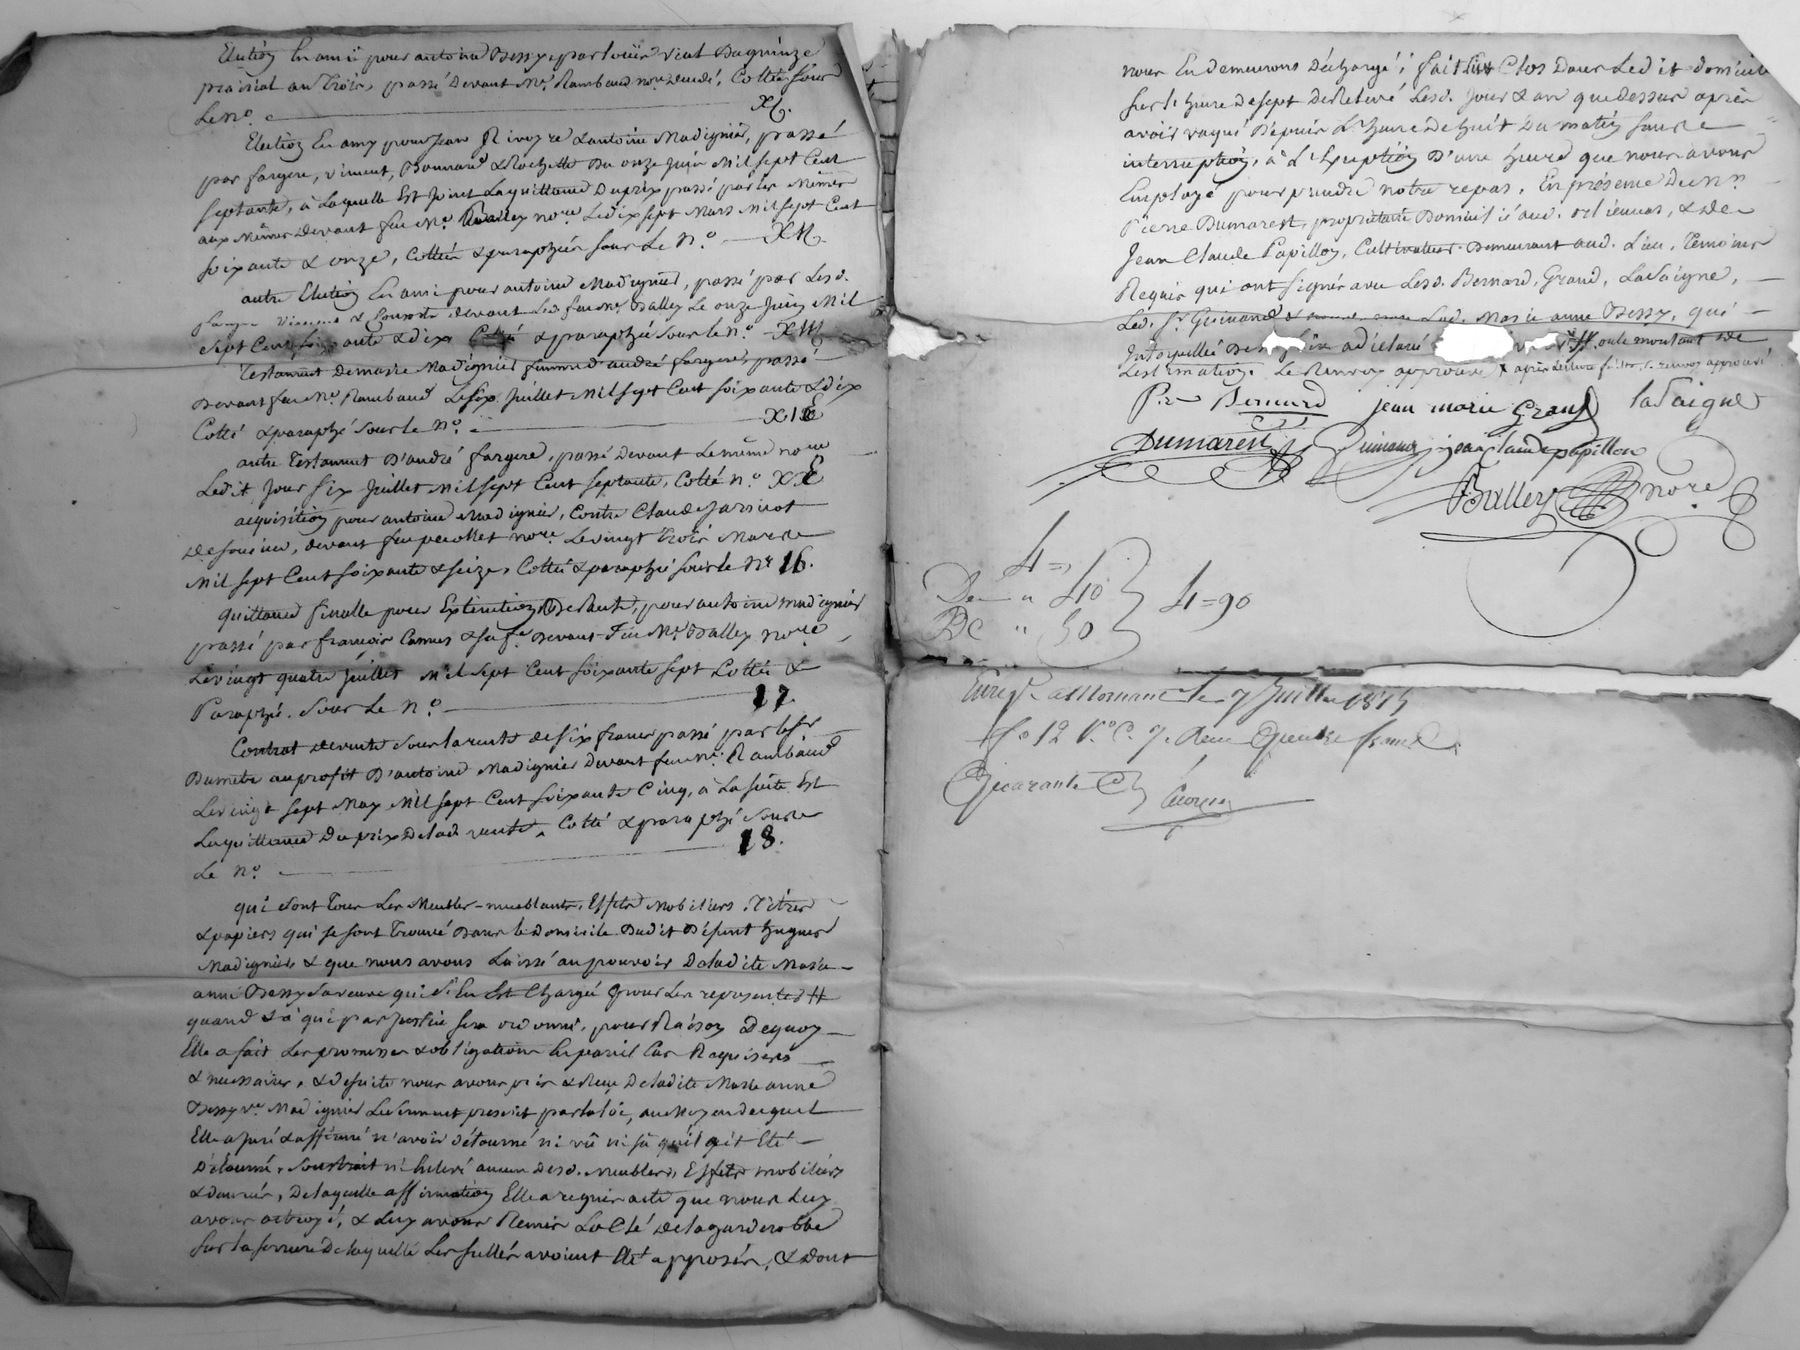 Election En ami pour antoine Dessy, par louis vial Du quinze
prairial an trois, passé Devant Me. Rambaud nore. Dudi, Cotté sous
Le No. XI.
Election En amy pour Jean Rivoyre & antoine Madignier, passé
par fargere, viment, Bonnard & Rochette Du onze Juin Mil sept Cent
septante, à Laquelle Est Joint La quittance Du prix passé par les Mêmes
aux Mêmes Devant feu Me. Balley nore. Le dix sept Mars Mil sept Cent
soixante & onze, Cottés & paraphés sous Le No. XII.
autre Election En ami pour antoine Madignier, passé par Lesd.
devant Led. feu Me. Balley Le onze Juin Mil
sept Cent soixante & dix Cotté & paraphé sous le No. XIII
Testament De marie Madignier femme d'andré fargere, passé
Devant feu Me. Rambaud Le six Juillet Mil sept Cent soixante & dix
Cotté & paraphé sous le No.
autre Testament D'andré fargere, passé Devant Le même nore
Ledit Jour six Juillet Mil sept Cent septante, Cotté No.
acquisition pour antoine Madignier, Contre Claude Jarsinot
devant feu perollet nore. Le vingt trois Mars
Mil sept Cent soixante & seize, Cotté & paraphé sous le No 16.
quittance finalle pour Extinction De Rente, pour antoine madignier
passé par françois Camus & sa fe. Devant Feu Me. Balley nore
Le vingt quatre Juillet Mil sept Cent soixante sept Cotté &
Paraphé. Sous Le No. 17.
Contrat de vente sur la rente de six francs passé par le sr.
Dumette au profit D'antoine Madignier Devant feu Me. Rambaud
Le vingt sept May Mil sept Cent soixante Cinq, à La suite Est
La quittance Du prix De lad. vente, Cotté & paraphé Sous
Le No. 18.
qui sont Tous Les Meubles-meublants, Effets Mobiliers, Titres
& papiers qui se sont Trouvé Dans le Domicile Dudit Défunt hugues
Madignier & que nous avons Laissé au pouvoir De ladite Marie
anne Dessy sa veuve qui s'En Est Chargée pour Les representer #
quand & à qui par Justice sera ordonné, pour Raison De quoy
Elle a fait Les promesses & obligations En pareil Cas Requises
& necessaires, & de suite nous avons pris & Reçu De ladite Marie anne
Dessy ve. Madignier Le serment prescrit par la loi, au Moyen duquel
Elle a Juré & affirmé n'avoir détourné ni vû ni sû qu'il ait Eté
Détourné, soustrait ni Enlevé aucun Desd. Meubles, Effets mobiliers
& denrées, De laquelle affirmation Elle a requis acte que nous Luy
avons octroyé, & Luy avons Remis La Clé de la garderobbe
sur la serrure De laquelle Les scellés avoient Eté apposés, & dont
nous En demeurons Déchargé; fait & Clos Dans Ledit domicile
sur L'heure De sept De Relevé Lesd. Jour & an que dessus après
avoir vaqué Depuis L'heure De huit Du matin sans
interruption, à L'Exception D'une heure que nous avons
Employé pour prendre notre repas, En présence De Mr.
Pierre Dumarest, propriétaire Domicilié aud. & De
Jean Claude Papillon, Cultivateur. Demeurant aud. Lieu, Témoins
Requis qui ont signés avec Lesd. Bernard, Grand, LaSaigne,
Led. Sr. Guimand & Lad. Marie anne Dessy, qui
Interpellée De signer a déclaré # ou le montant De
L'estimation. Le Renvoy approuvé & après Lecture faite, Le renvoy approuvé
Pre Bernard jean marie Grand laSaigne
Dumarest Guimand jean Claude papillon
Balley nore
4=,
De " 40 } 4=90
De " 50
Enregé. a le 7 Juillet 1813
fo 12 Vo. C. 7. Reçu quatre francs
Quarante C